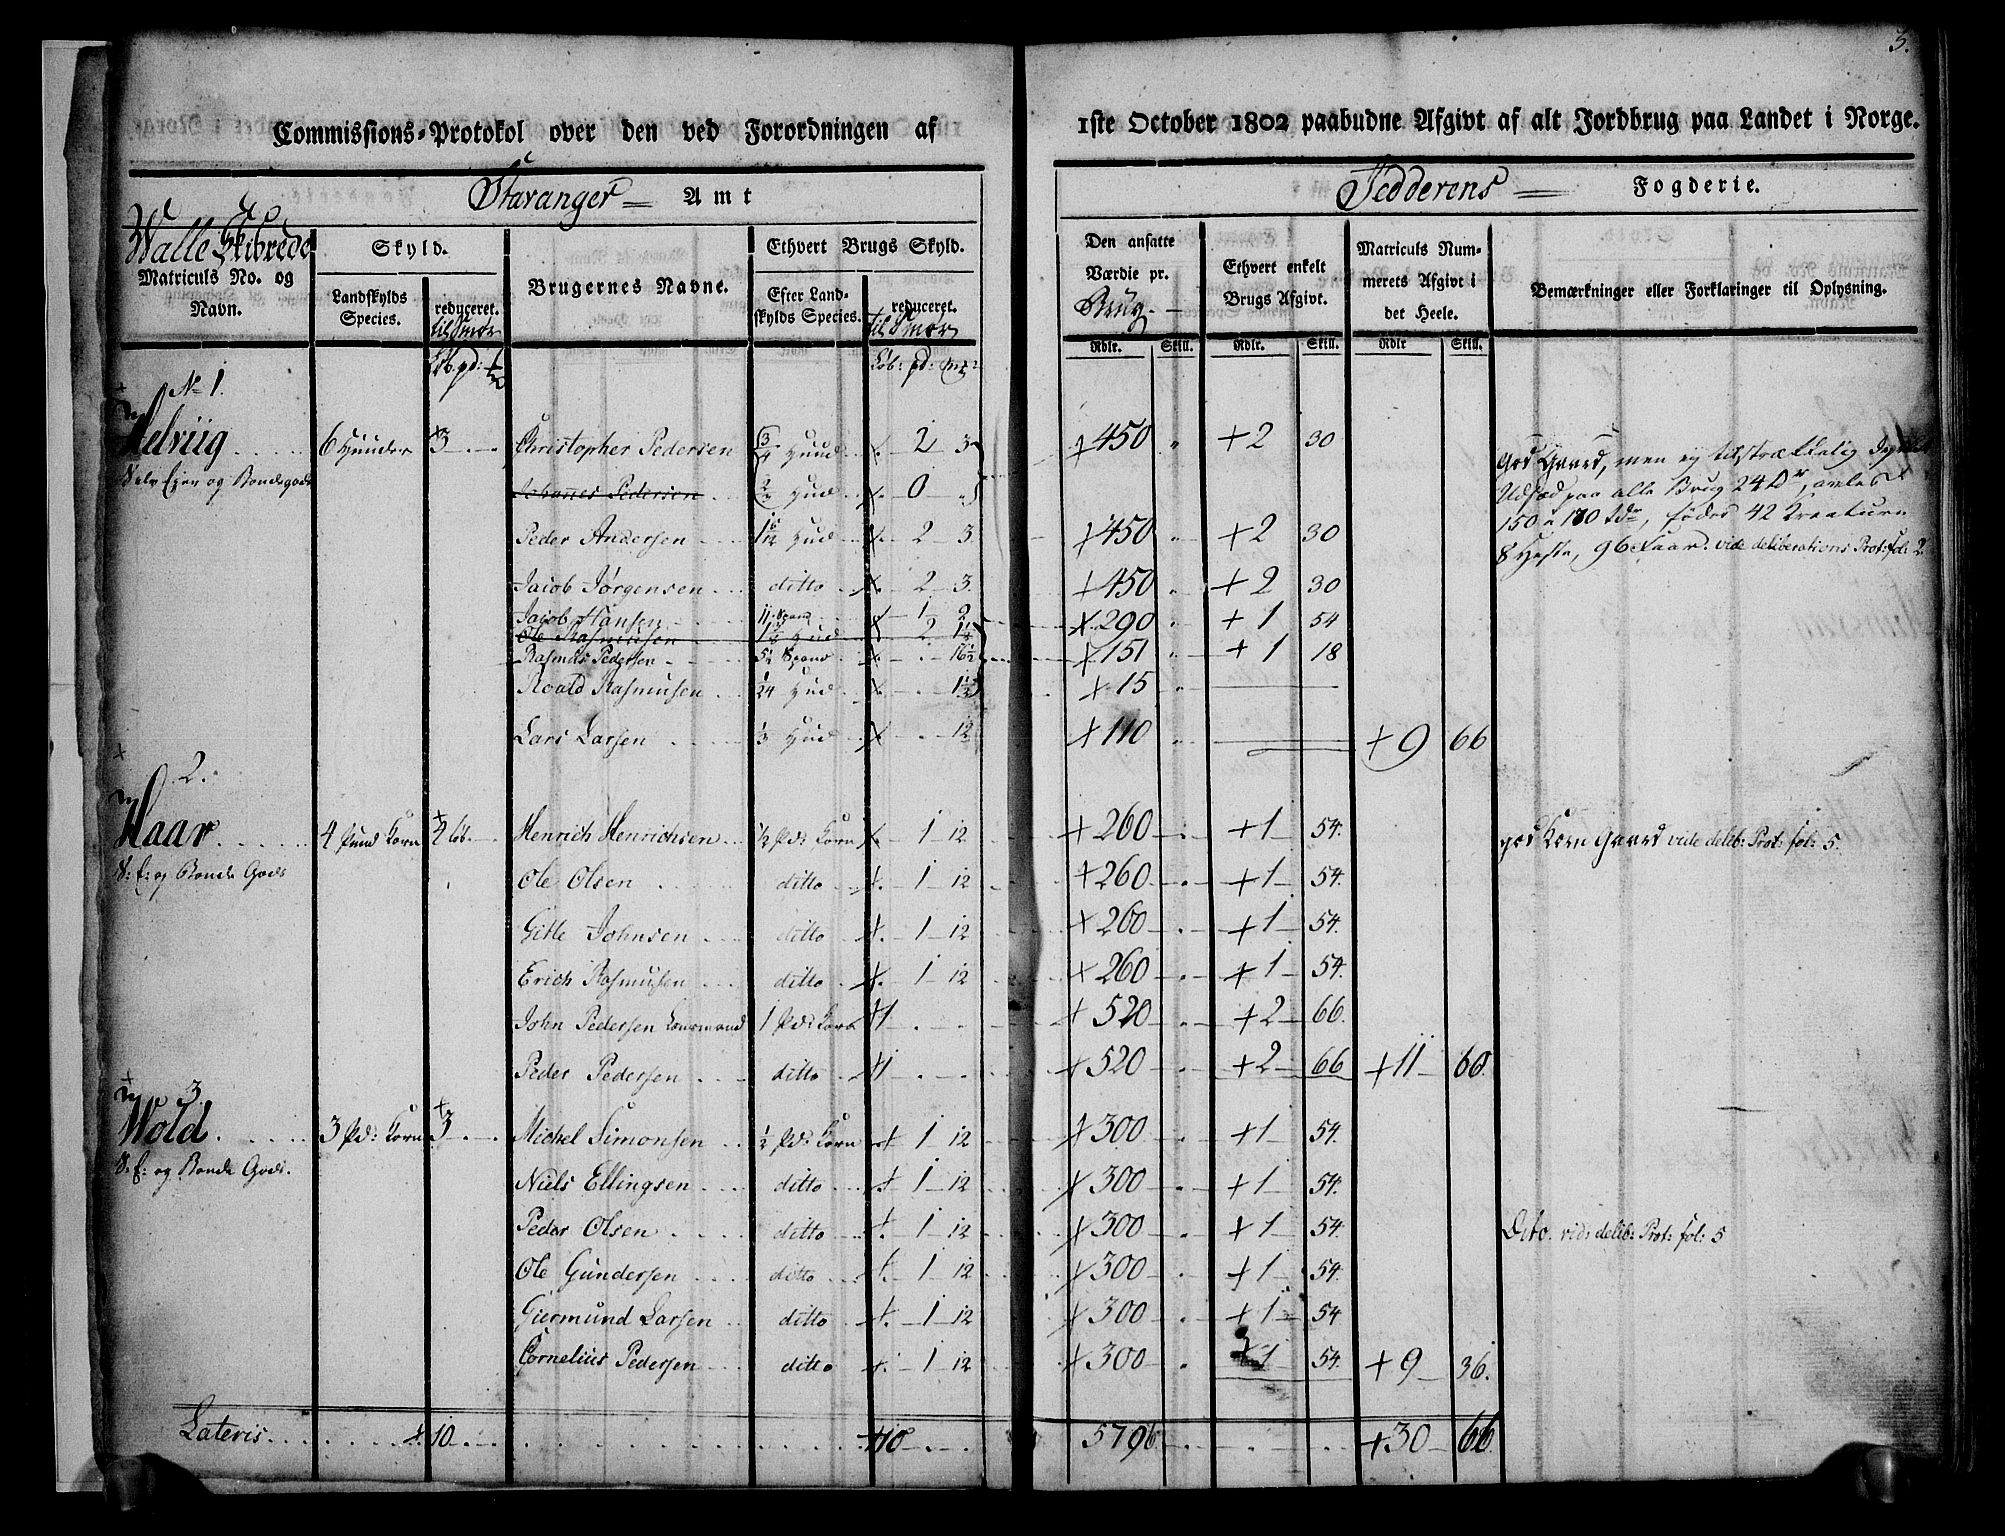 3.
Commissions-Protokol over den ved Forordningen af 1ste October 1802 paabudne Afgivt af alt Jordbrug paa Landet i Norge.
Stavanger Amt Jedderens Fogderie.
Walle Skibrede
Matriculs No. og Navn.
Skyld.
Landskylds Species.
reduceret. til Smør
Brugernes Navne.
Ethvert Brugs Skyld.
Efter Landskylds Species.
reduceret. til Smør
Den ansatte Værdie pr. Brug.
Ethvert enkelt Brugs Afgivt.
Matriculs Nummerets Afgivt i det Heele.
Bemærkninger eller Forklaringer til Oplysning.
Løb: pd: mk: Rdlr. Skill. Rdlr. Skill. Rdlr Skill.
No 1.
Helviig 6 Huuder +3 Christopher Pedersen 3/4 Huud 2 3 +450 " +2 30
Selv Ejer og Bondegods Johannes Pedersen Hud 0
Peder Andersen Hud 2 3 +450 +2 30
Jacob Jørgensen ditto 2 3 +450 +2 30
Jacob Hansen 11 Spand 1 2 +290 +1 54
Ole Rasmusen Hud 2 1½
Rasmus Pedersen 5½ Spand 16½ +151 +1 18
Roald Rasmusen 1/24 Hud 1½ +15
Lars Larsen 1/3 Hud 12 +110 +9 66
God Gaard, men ej tilstrækkelig
Udsæd paa alle Brug 24 Dr, avles
150 a 180 tdr, føder 42 Kreature
8 Heste, 96 Faar. vide deliberations Prot: fol: 2
2.
Haar 4 Pund Korn +4 Løb. Henrich Henrichsen ½ Pd: Korn 1 12 +260 +1 54. god Korn Gaard vide delib: Prot: fol: 5.
S: E: og Bonde Gods Ole Olsen ditto 1 12 +260 +1 54.
Gitle Johnsen ditto 1 12 +260 +1 54.
Erich Rasmusen ditto 1 12 +260 +1 54.
John Pedersen Lensmand 1 Pd: Korn +1 +520 +2 66.
Peder Pedersen ditto +1 +520 +2 66 +11 60.
3.
Wold. 3 Pd: Korn +3 Michel Simonsen ½ Pd: Korn 1 12 +300 +1 54.
S: E: og Bonde Gods. Niels Ellingsen ditto 1 12 +300 +1 54.
Peder Olsen ditto 1 12 +300 +1 54. Dito. vid: delib: Prot: fol: 5
Ole Gundersen ditto 1 12 +300 +1 54.
Giermund Larsen ditto 1 12 +300 +1 54
Cornelius Pedersen ditto 1 12 +300 +1 54. +9 36.
Lateris +10 +10 5796 +30 66